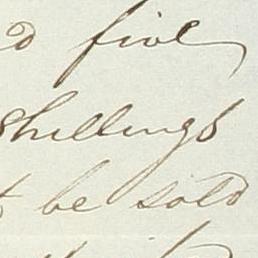 five
shillings
be sold